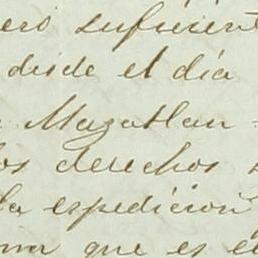 ero suficient
desde el día
Mazatlan
los derechos
la espedicion
que es e